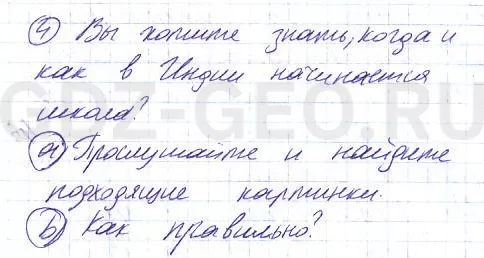 4) Вы хотите знать, когда и
как в Индии начинается
школа?
GDZ-GEO.RU
а) Прослушайте и найдите
подходящие картинки.
b) Как правильно?